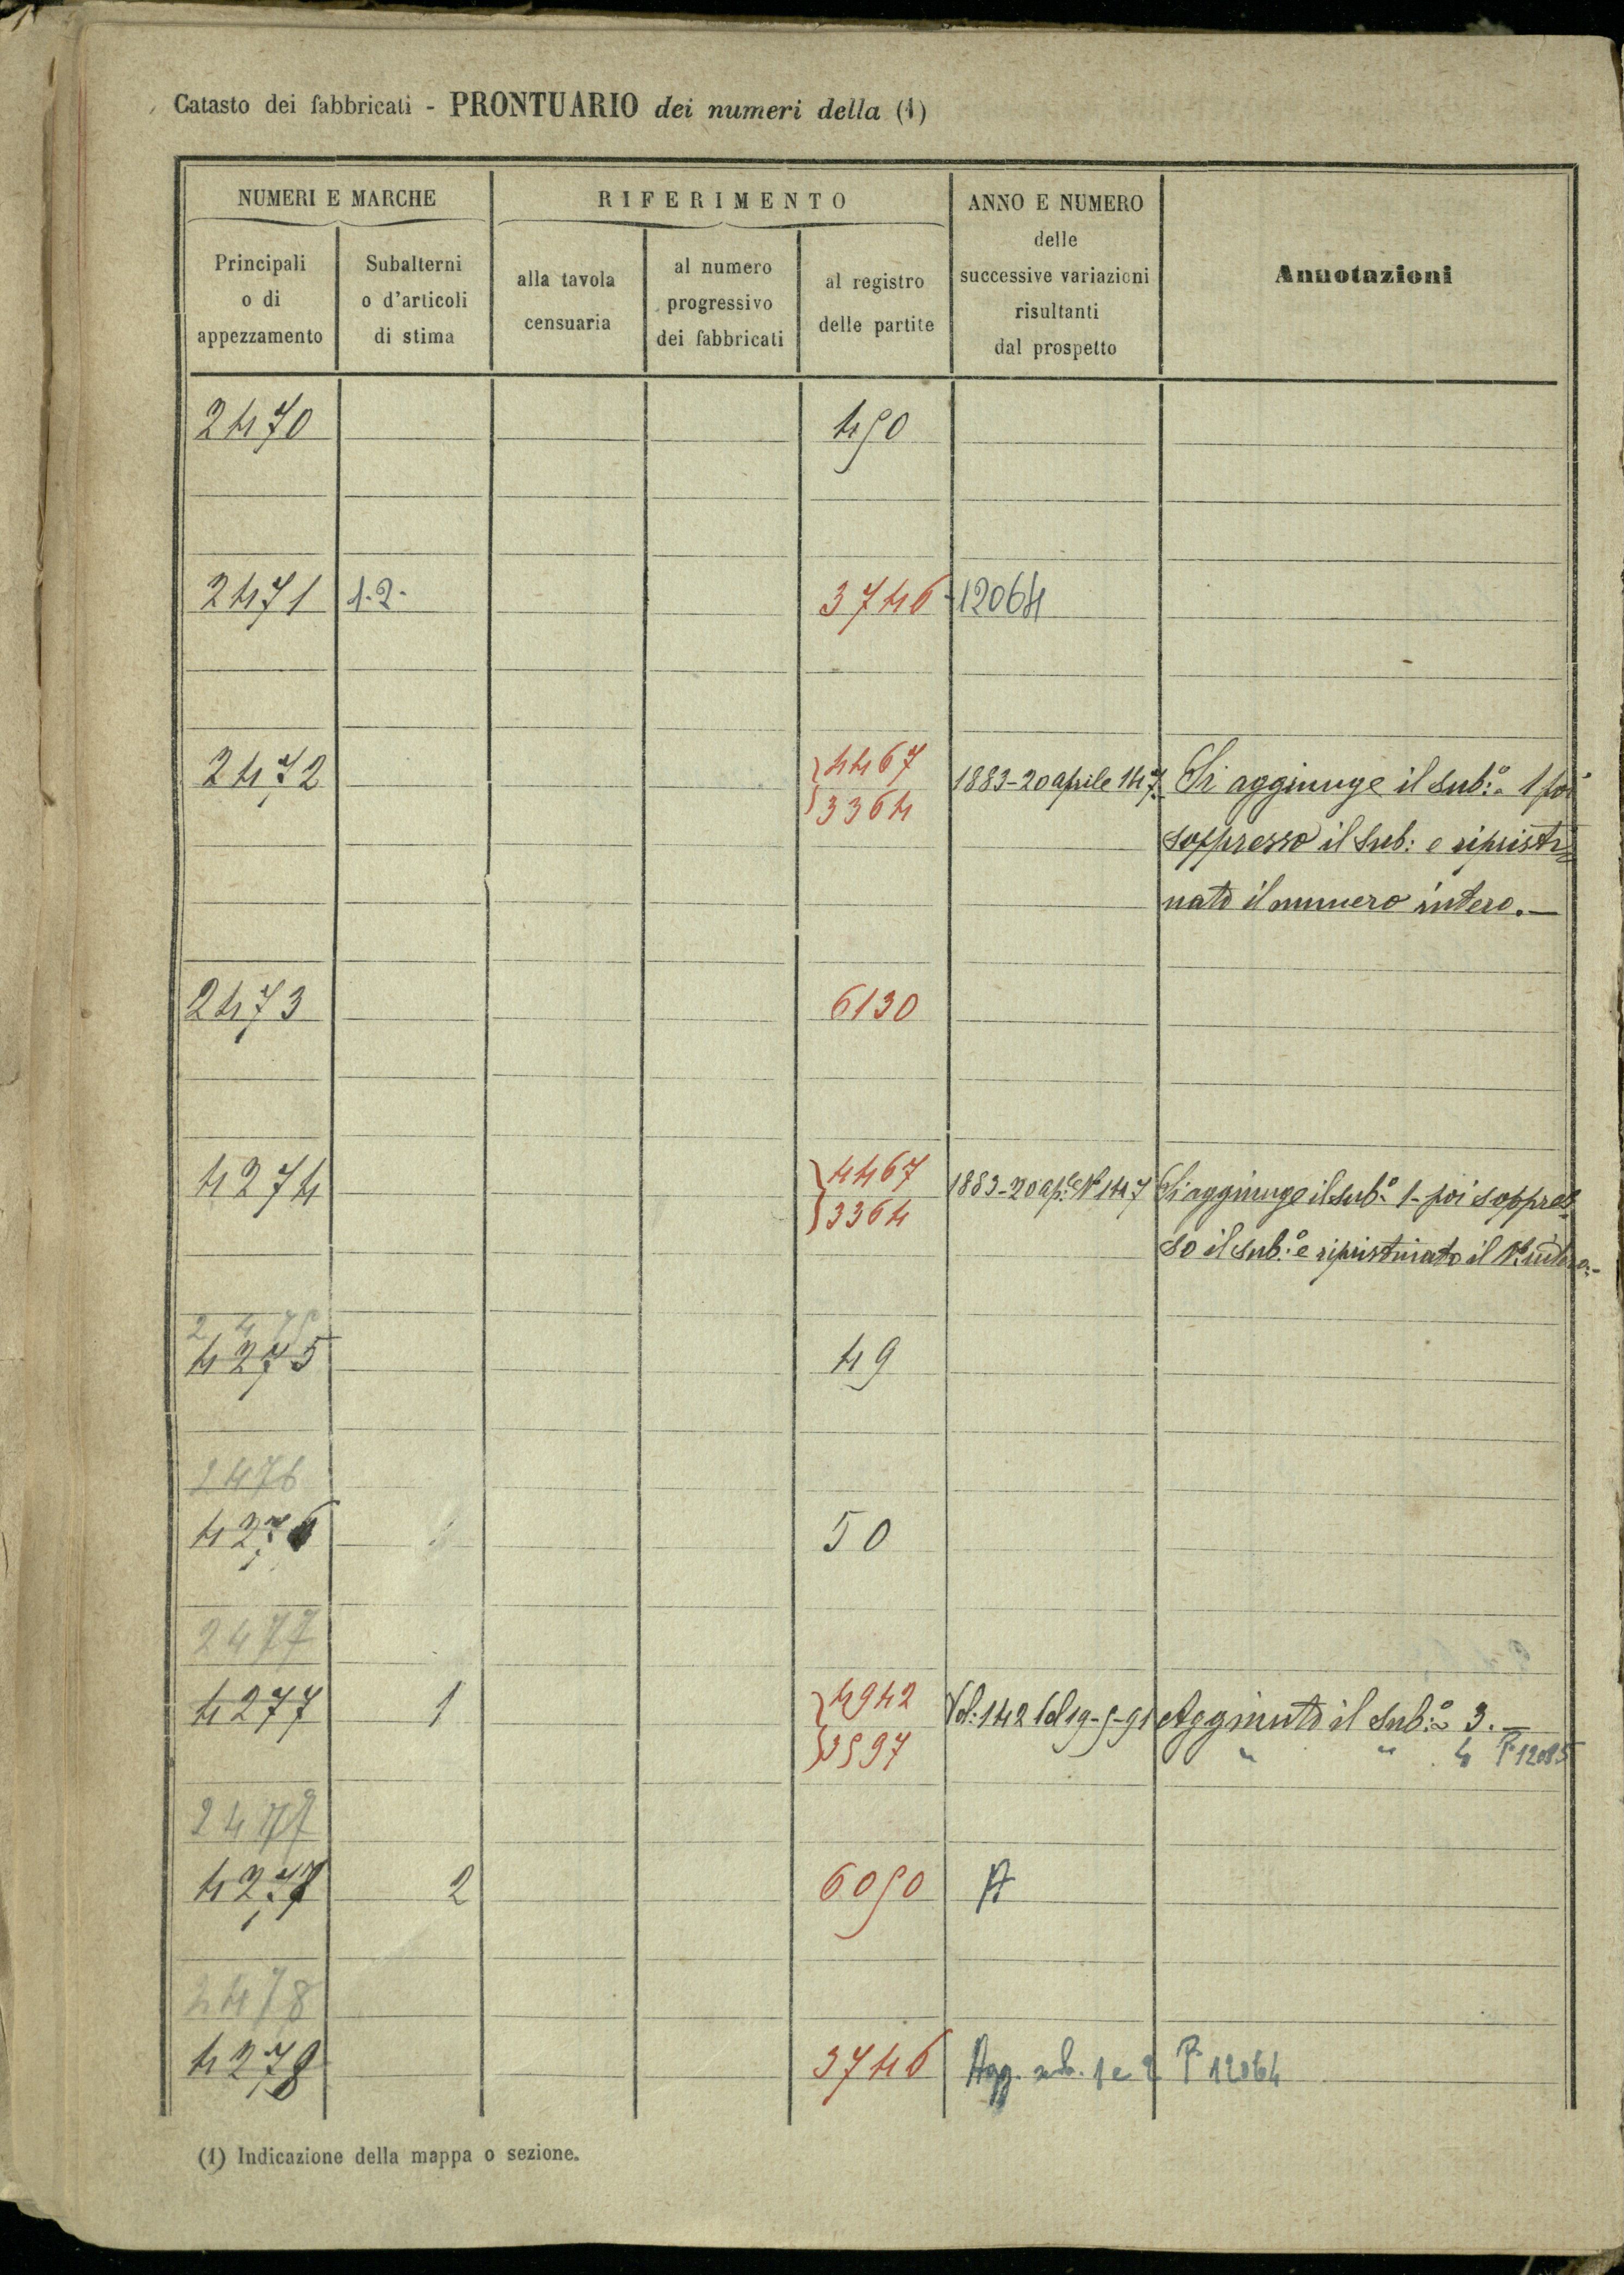 Catasto dei fabbricati - PRONTUARIO dei numeri della (1)
NUMERI E MARCHE
RIFERIMENTO
ANNO E NUMERO
delle
successive variazioni
risultanti
dal prospetto
Annotazioni
Principali
o di
appezzamento
Subalterni
o d'articoli
di stima
alla tavola
censuaria
al numero
progressivo
dei fabbricati
al registro
delle partite
2470 490
2471 1.2. 3746 12064
2472 4467 1883-20 aprile 147. Si aggiunge il sub:º 1 poi
3364
soppresso il sub: e ripristi=
nato il numero intero.—
2473 6130
4274 4467 1883-20 ap.e Nº 147 Si aggiunge il subº 1- poi soppres=
3364
so il sub:º e ripristinato il Nº intero.-
2475
4275 49
2476
4276 50
2477
4277 1 4942 Vol: 142 Aggiunto il sub:º 3.—
3597 " " 4 P 12085
2477
4277 2 6090 A
2478
4278 3746 Agg. sub. 1 e 2 P 12064
(1) Indicazione della mappa o sezione.